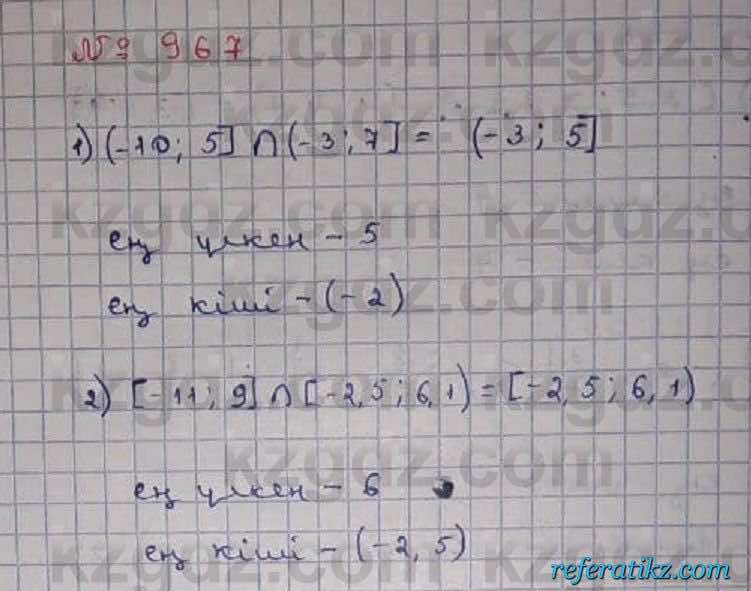 № 967
1) (-10; 5] ∩ (-3; 7] = (-3; 5]
ең үлкен - 5
ең кіші - (-2)
2) [-11; 9] ∩ [-2,5; 6,1) = [-2,5; 6,1)
ең үлкен - 6
ең кіші - (-2,5)
referatikz.com
kzgdz.com